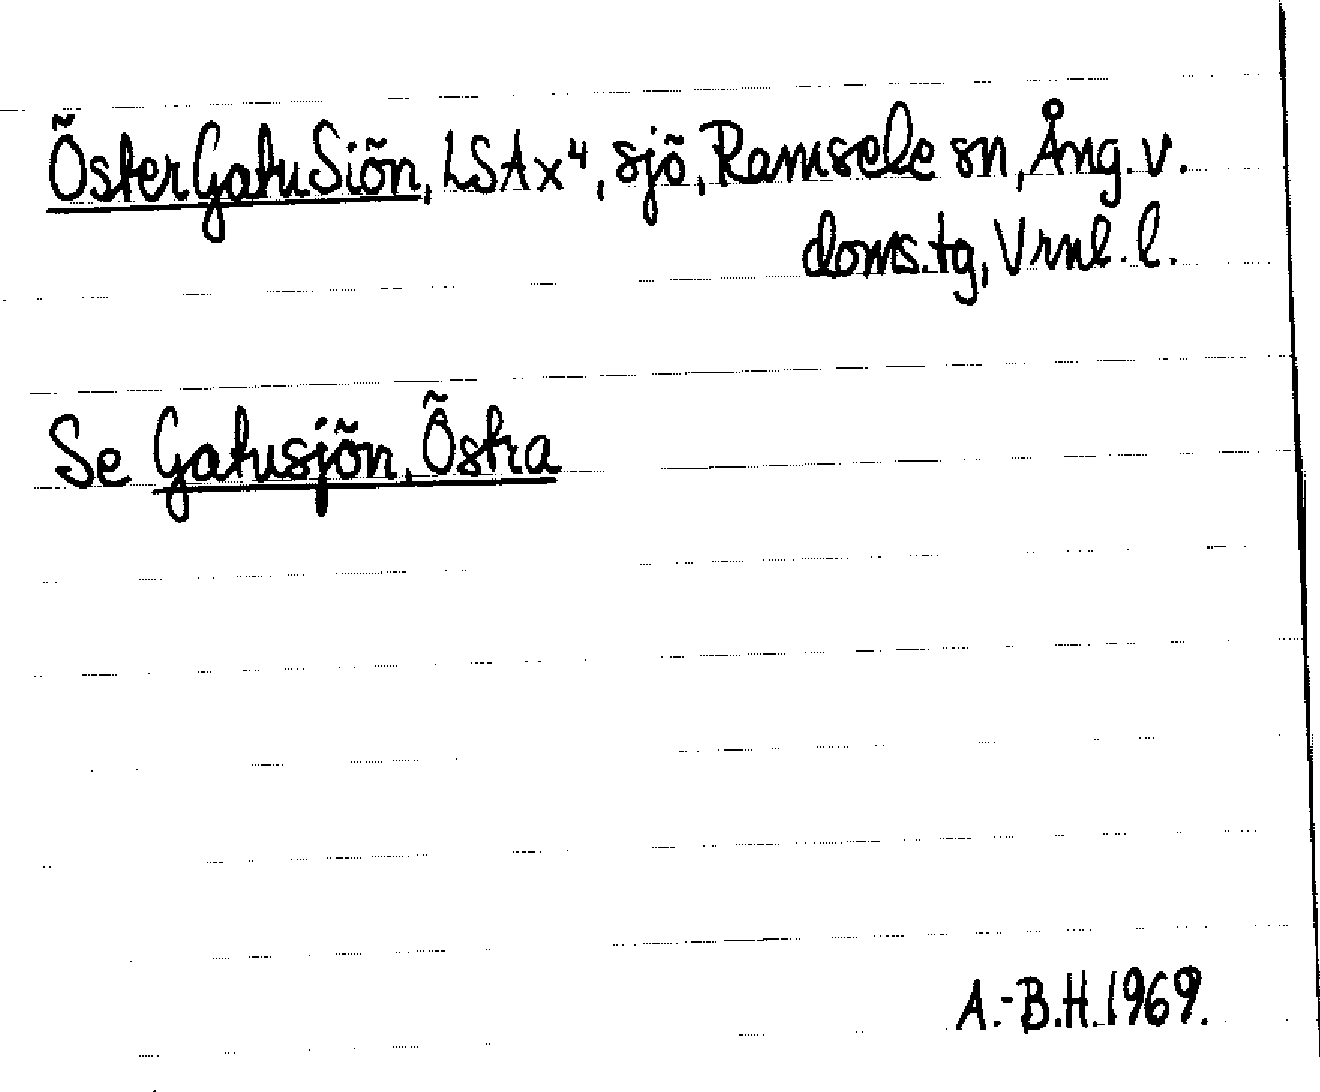 ÖsterGatuSiön, LSA x⁴, sjö, Ramsele sn, Ång. v.
doms.tg, Vrnl. l.
Se Gatusjön, Östra
A.-B.H. 1969.